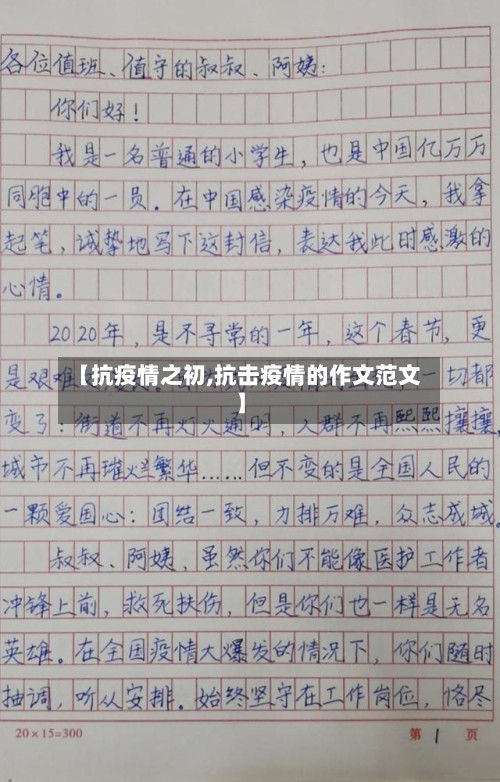 各位值班、值守的叔叔、阿姨:
你们好!
我是一名普通的小学生,也是中国亿万万
同胞中的一员。在中国感染疫情的今天,我拿
起笔,诚挚地写下这封信,表达我此时感激的
心情。
2020年,是不寻常的一年,这个春节,更
是艰难
【抗疫情之初,抗击疫情的作文范文
】
一切都
变了:街道不再灯火通明,人群不再熙熙攘攘,
城市不再璀烂繁华……但不变的是全国人民的
一颗爱国心:团结一致,力排万难,众志成城。
叔叔、阿姨,虽然你们不能像医护工作者
冲锋上前,救死扶伤,但是你们也一样是无名
英雄。在全国疫情大爆发的情况下,你们随时
抽调,听从安排。始终坚守在工作岗位,恪尽
20×15=300
第 1 页